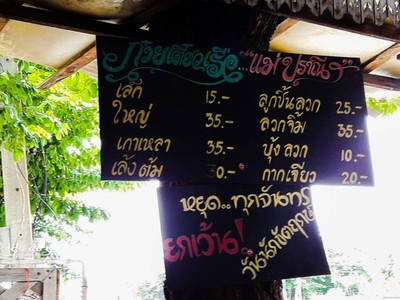 ก๋วยเตี๋ยวเรือ..."แม่ปราณี"
เล็ก 15.-
ใหญ่ 35.-
เกาเหลา 35.-
เล้งต้ม 30.-
ลูกชิ้นลวก 25.-
ลวกจิ้ม 35.-
บุ้งลวก 10.-
กากเจียว 20.-
หยุด..ทุกจันทร์
ยกเว้น!
วันนักขัตฤกษ์